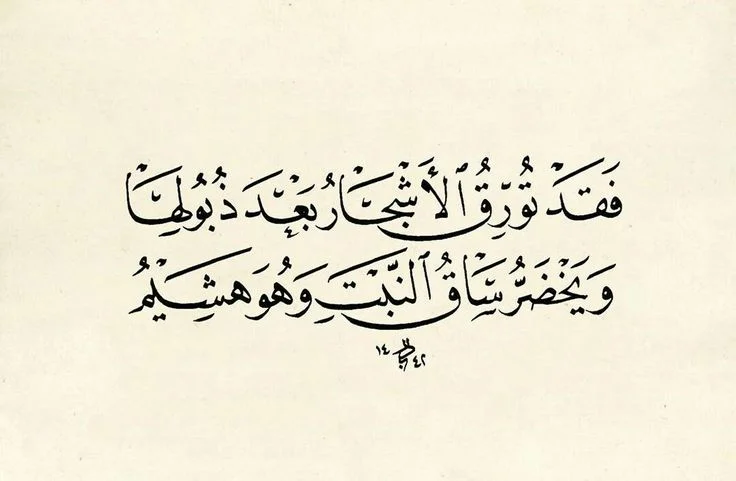 فَقَدْ تُورِّقُ ٱلْأَشْجَارُ بَعْدَ ذُبُولِهَا
وَيَخْضَرُّ سَاقُ ٱلنَّبْتِ وَهُوَ هَشِيمُ
١٤ ٤٢